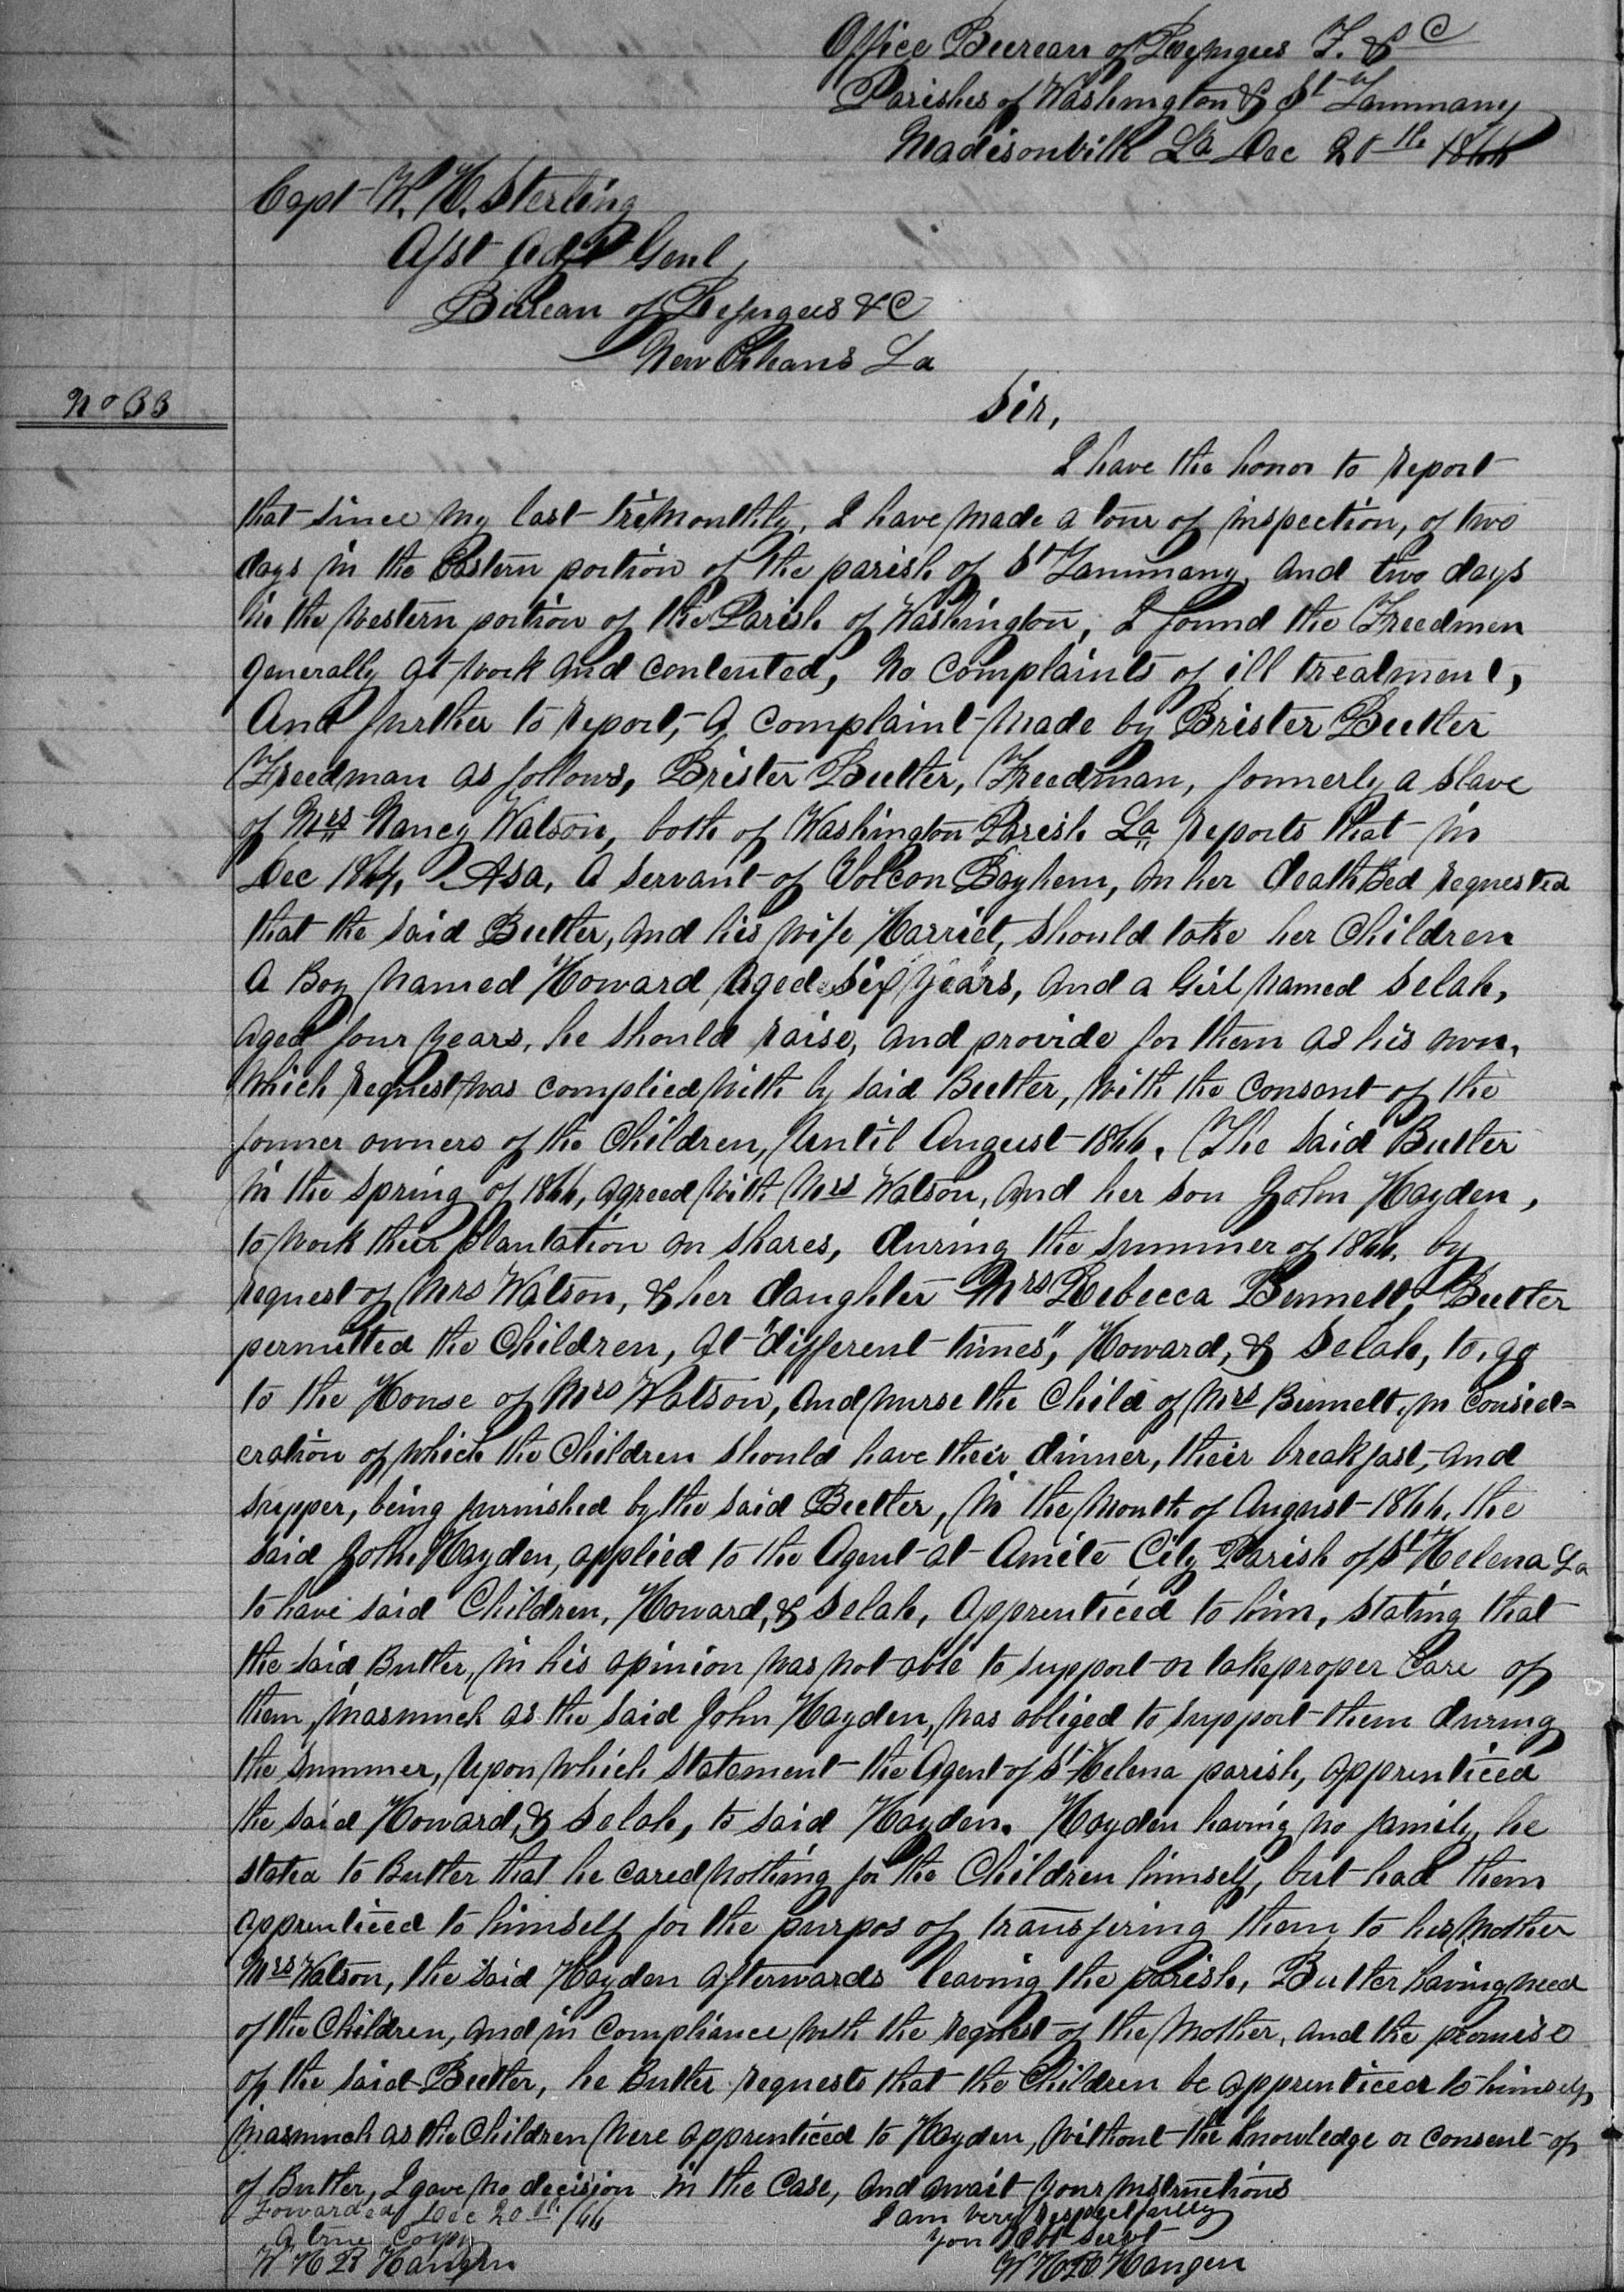 Office Bureau of Refugees F. & C
Parishes of Washington & St Tammany
Madisonville La Dec 20th 1866
Capt W. H. Sterling
Asst Adjt Genl
Bureau of Refugees &C
New Orleans La
No 33
Sir,
I have the honor to report
that since my last trimonthly, I have made a tour of inspection, of two
days in the Eastern portion of the parish of St Tammany, and two days
in the western portion of the Parish of Washington, I found the Freedmen
generally at work and contented, no complaints of ill treatment,
And further to report, a complaint made by Brister Butler
Freedman as follows, Brister Butler, Freedman, formerly a slave
of Mrs Nancy Watson, both of Washington Parish La, reports that in
Dec 1864, Asa, a servant of Volcon Bayhem, on her death Bed requested
that the said Butler, and his wife Harriet, should take her Children
a Boy named Howard aged six years, and a Girl named Selah,
aged four years, he should raise, and provide for them as his own,
which request was complied with by said Butler, with the consent of the
former owners of the Children, until August 1866. The said Butler
in the spring of 1866, agreed with Mrs Watson, and her son John Hayden,
to work their plantation on shares, during the summer of 1866, by
request of Mrs Watson, & her daughter Mrs Rebecca Bennett, Butler
permitted the Children, at "different times", Howard, & Selah, to go
to the House of Mrs Watson, and nurse the Child of Mrs Bennett, in consid=
eration of which the Children should have their dinner, their breakfast, and
supper, being furnished by the said Butler, in the month of August 1866, the
said John Hayden, applied to the Agent at Amite City Parish of St Helena La
to have said Children, Howard, & Selah, apprenticed to him, stating that
the said Butler, in his opinion was not able to support or take proper care of
them, inasmuch as the said John Hayden, was obliged to support them during
the summer, upon which statement the Agent of St Helena parish, apprenticed
the said Howard, & Selah, to said Hayden. Hayden having no family, he
stated to Butler that he cared nothing for the Children himself, but had them
apprenticed to himself for the purpos of transfering them to his mother
Mrs Watson, the said Hayden afterwards leaving the parish, Butler having need
of the Children, and in compliance with the request of the mother, and the promise
of the said Butler, he Butler requests that the Children be apprenticed to himself,
inasmuch as the Children were apprenticed to Hayden, without the knowledge or consent of
of Butler, I gave no decision in the case, and await your instructions
Forwarded Dec 20th /66
I am very respectfully
a true copy
your Obt Servt
W H R Hangen
W H R Hangen